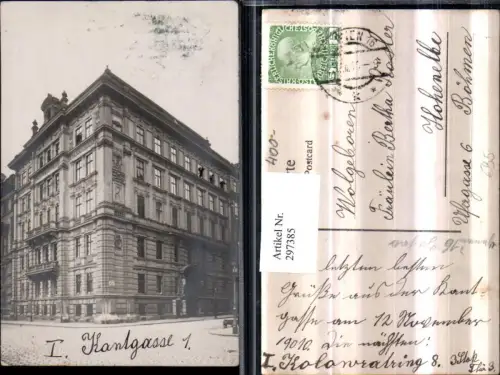 I. Kantgasse 1.
WIEN
400.-
Postcard
Artikel Nr.
297385
Wolgeboren
Fräulein Bertha Kessler
Hohenelbe
6 Böhmen
letzten besten
Grüße aus der Kant
gasse am 12 November
1910. Die nächsten:
I. Kolowratring 8. 3 Stock
Tür 3.